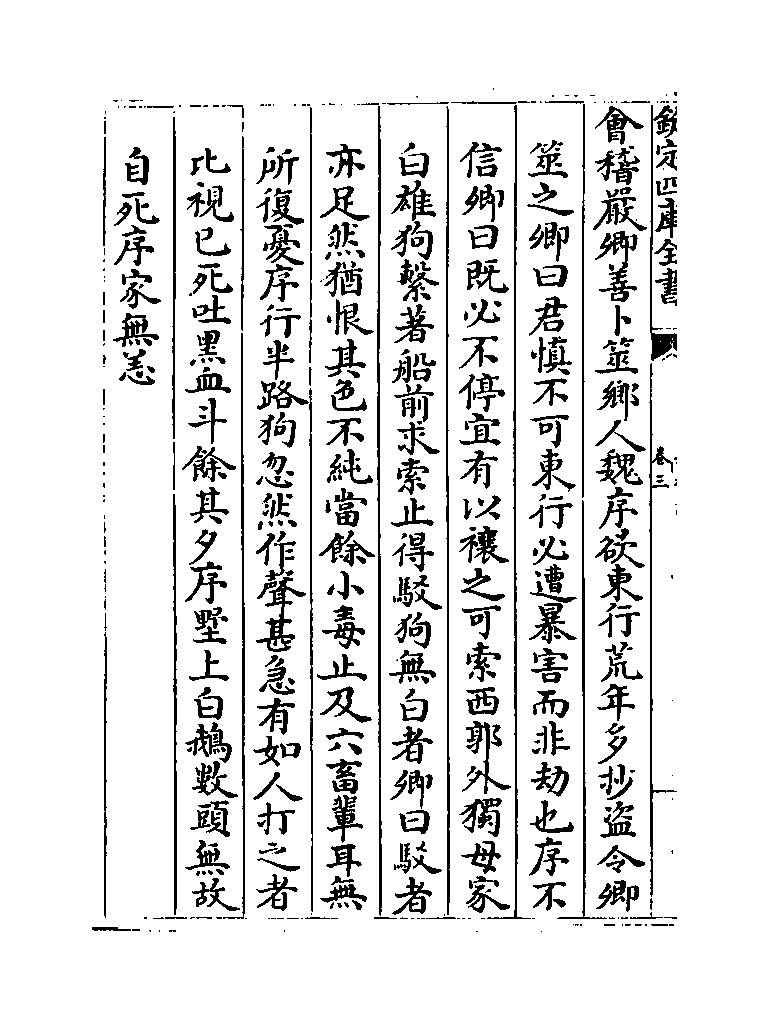 欽定四庫全書
卷三
會稽嚴卿善卜筮鄉人魏序欲東行荒年多抄盜令卿
筮之卿曰君慎不可東行必遭暴害而非劫也序不
信卿曰既必不停宜有以禳之可索西郭外獨母家
白雄狗繫著船前求索止得駁狗無白者卿曰駁者
亦足然猶恨其色不純當餘小毒止及六畜輩耳無
所復憂序行半路狗忽然作聲甚急有如人打之者
比視已死吐黑血斗餘其夕序墅上白鵝數頭無故
自死序家無恙